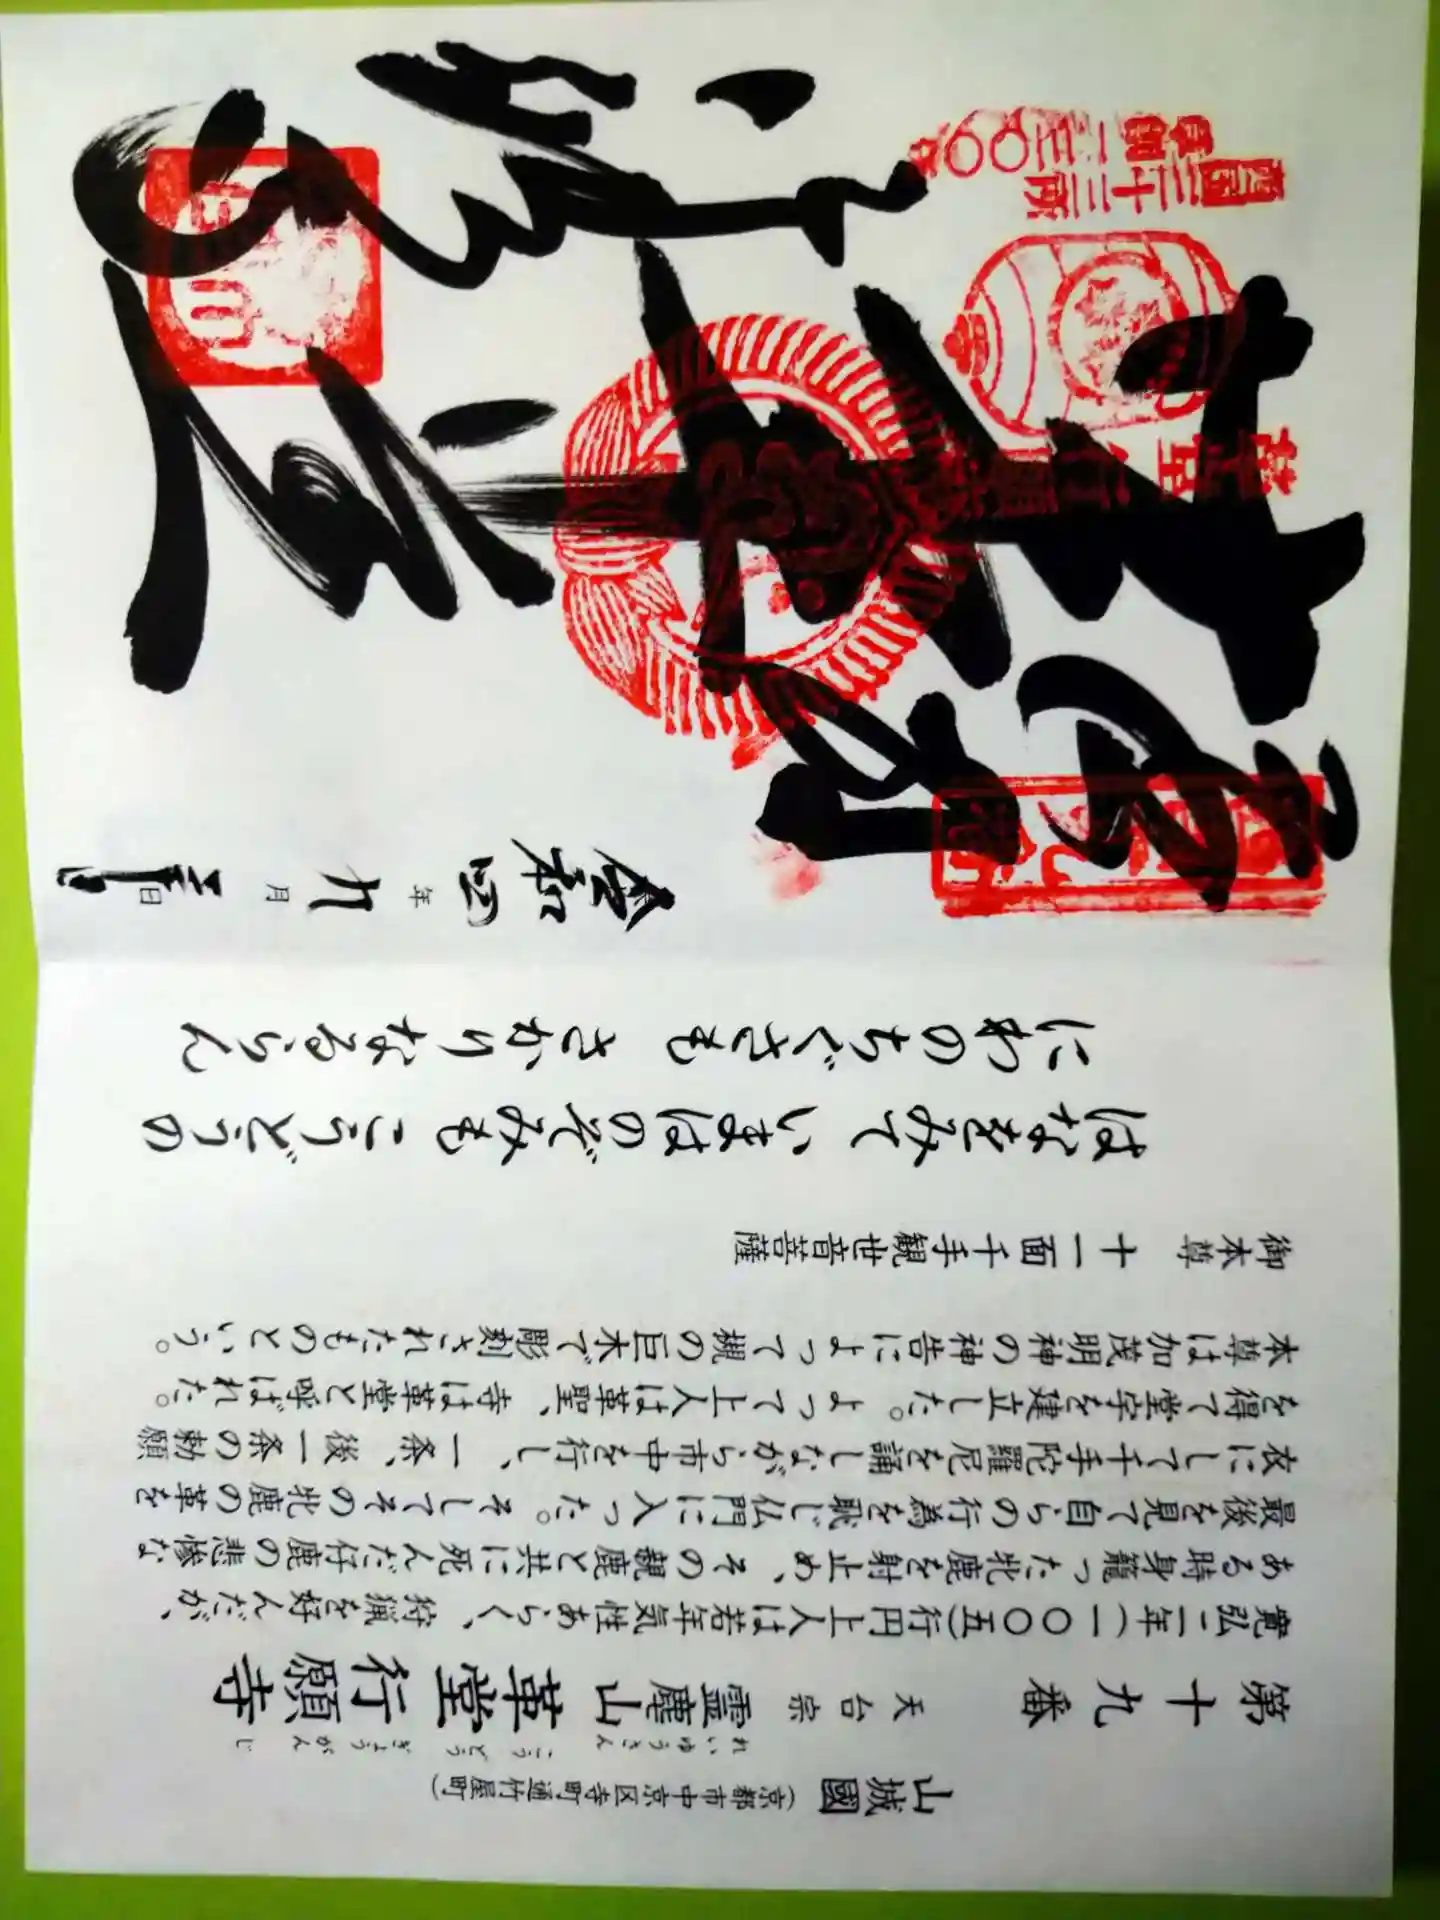 山城國（京都市中京区寺町通竹屋町）
れいゆうざん こうどう ぎょうがんじ
第十九番 天台宗 霊麀山 革堂 行願寺
寛弘二年(一〇〇五)行円上人は若年気性あらく、狩猟を好んだが、
ある時身籠った牝鹿を射止め、その親鹿と共に死んだ仔鹿の悲惨な
最後を見て自らの行為を恥じ仏門に入った。そしてその牝鹿の革を
衣にして千手陀羅尼を誦しながら市中を行し、一条、後一条の勅願
を得て堂宇を建立した。よって上人は革聖、寺は革堂と呼ばれた。
本尊は加茂明神の神告によって槻の巨木で彫刻されたものという。
御本尊 十一面千手観世音菩薩
はなをみて いまはのぞみも こうどうの
にわのちぐさも さかりなるらん
西国三十三所
草創一三〇〇年
革堂
行願寺
令和四年九月 日